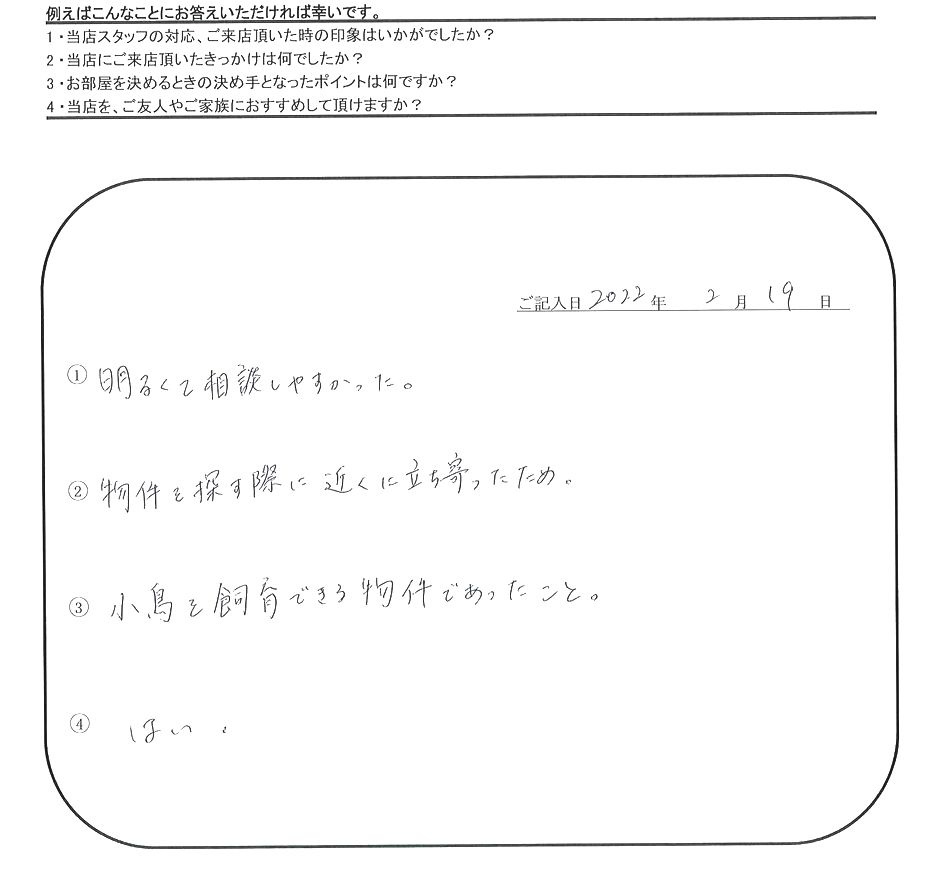 例えばこんなことにお答えいただければ幸いです。
1・当店スタッフの対応、ご来店頂いた時の印象はいかがでしたか？
2・当店にご来店頂いたきっかけは何でしたか？
3・お部屋を決めるときの決め手となったポイントは何ですか？
4・当店を、ご友人やご家族におすすめして頂けますか？
ご記入日 2022 年 2 月 19 日
① 明るくて相談しやすかった。
② 物件を探す際に近くに立ち寄ったため。
③ 小鳥を飼育できる物件であったこと。
④ はい。